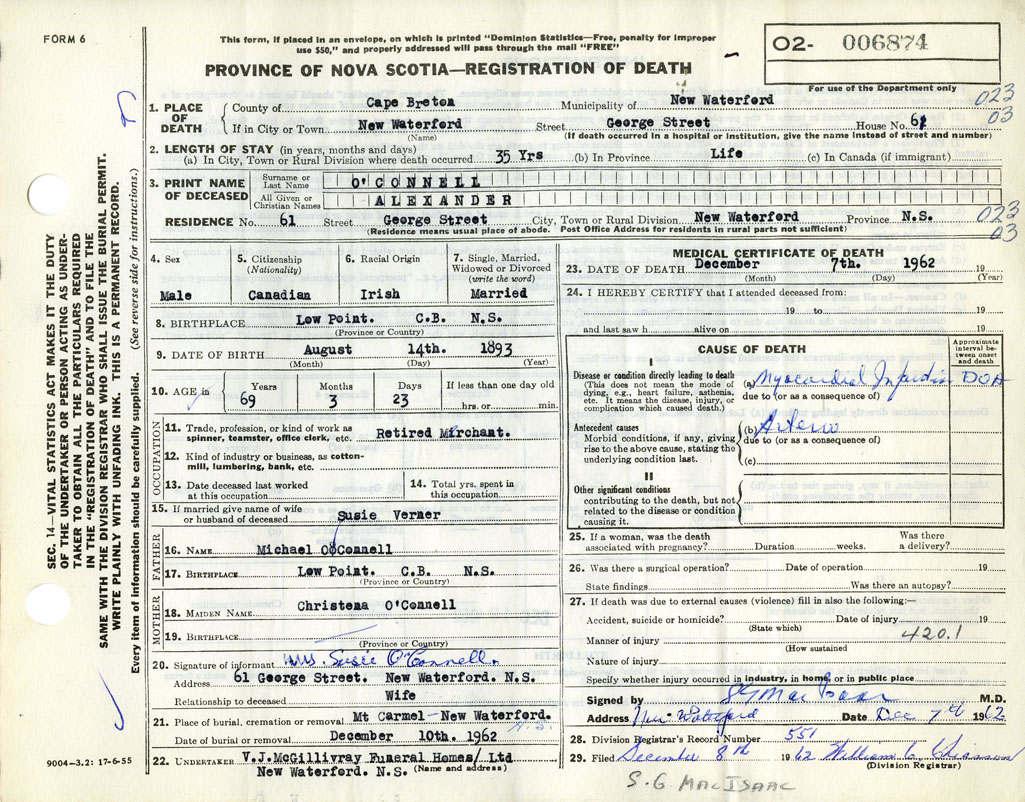 FORM 6
This form, if placed in an envelope, on which is printed "Dominion Statistics—Free, penalty for improper
use $50," and properly addressed will pass through the mail "FREE"
O2- 006874
PROVINCE OF NOVA SCOTIA—REGISTRATION OF DEATH
For use of the Department only
023
03
SEC. 14—VITAL STATISTICS ACT MAKES IT THE DUTY
OF THE UNDERTAKER OR PERSON ACTING AS UNDER-
TAKER TO OBTAIN ALL THE PARTICULARS REQUIRED
IN THE "REGISTRATION OF DEATH" AND TO FILE THE
SAME WITH THE DIVISION REGISTRAR WHO SHALL ISSUE THE BURIAL PERMIT.
WRITE PLAINLY WITH UNFADING INK. THIS IS A PERMANENT RECORD.
Every item of information should be carefully supplied. (See reverse side for instructions.)
1. PLACE OF DEATH County of Cape Breton Municipality of New Waterford
If in City or Town New Waterford Street George Street House No. 61
(Name) (If death occurred in a hospital or institution, give the name instead of street and number)
2. LENGTH OF STAY (in years, months and days)
(a) In City, Town or Rural Division where death occurred 35 Yrs (b) In Province Life (c) In Canada (if immigrant)
3. PRINT NAME OF DECEASED Surname or Last Name O'CONNELL
All Given or Christian Names ALEXANDER
RESIDENCE No. 61 Street George Street City, Town or Rural Division New Waterford Province N.S.
(Residence means usual place of abode. Post Office Address for residents in rural parts not sufficient)
023
03
4. Sex
Male
5. Citizenship
(Nationality)
Canadian
6. Racial Origin
Irish
7. Single, Married,
Widowed or Divorced
(write the word)
Married
8. BIRTHPLACE Low Point. C.B. N.S.
(Province or Country)
9. DATE OF BIRTH August 14th. 1893
(Month) (Day) (Year)
10. AGE in Years Months Days If less than one day old
69 3 23 hrs. or min.
OCCUPATION
11. Trade, profession, or kind of work as
spinner, teamster, office clerk, etc. Retired Merchant.
12. Kind of industry or business, as cotton-
mill, lumbering, bank, etc.
13. Date deceased last worked
at this occupation
14. Total yrs. spent in
this occupation
15. If married give name of wife
or husband of deceased Susie Verner
FATHER
16. NAME Michael O'Connell
17. BIRTHPLACE Low Point. C.B. N.S.
(Province or Country)
MOTHER
18. MAIDEN NAME Christena O'Connell
19. BIRTHPLACE
(Province or Country)
20. Signature of informant Mrs. Susie O'Connell.
Address 61 George Street. New Waterford. N.S.
Relationship to deceased Wife
21. Place of burial, cremation or removal Mt Carmel-New Waterford.
N.S.
Date of burial or removal December 10th. 1962
22. UNDERTAKER V.J.McGillivray Funeral Homes/ Ltd
New Waterford. N.S. (Name and address)
9004—3.2: 17-6-55
MEDICAL CERTIFICATE OF DEATH
23. DATE OF DEATH December 7th. 1962 19
(Month) (Day) (Year)
24. I HEREBY CERTIFY that I attended deceased from:
19 to 19
and last saw h alive on 19
CAUSE OF DEATH
Approximate
interval be-
tween onset
and death
I
Disease or condition directly leading to death
(This does not mean the mode of
dying, e.g., heart failure, asthenia,
etc. It means the disease, injury, or
complication which caused death.)
(a) Myocardial Infarction DOA
due to (or as a consequence of)
Antecedent causes
Morbid conditions, if any, giving
rise to the above cause, stating the
underlying condition last.
(b) Arterio
due to (or as a consequence of)
(c)
II
Other significant conditions
contributing to the death, but not
related to the disease or condition
causing it.
25. If a woman, was the death
associated with pregnancy? Duration weeks. Was there
a delivery?
26. Was there a surgical operation? Date of operation 19
State findings Was there an autopsy?
27. If death was due to external causes (violence) fill in also the following:—
Accident, suicide or homicide? Date of injury 19
(State which)
420.1
Manner of injury
(How sustained
Nature of injury
Specify whether injury occurred in industry, in home or in public place
Signed by SG MacIsaac M.D.
Address New Waterford Date Dec 7th 1962
28. Division Registrar's Record Number 551
29. Filed December 8th 1962 William C.
(Division Registrar)
S.G MACISAAC